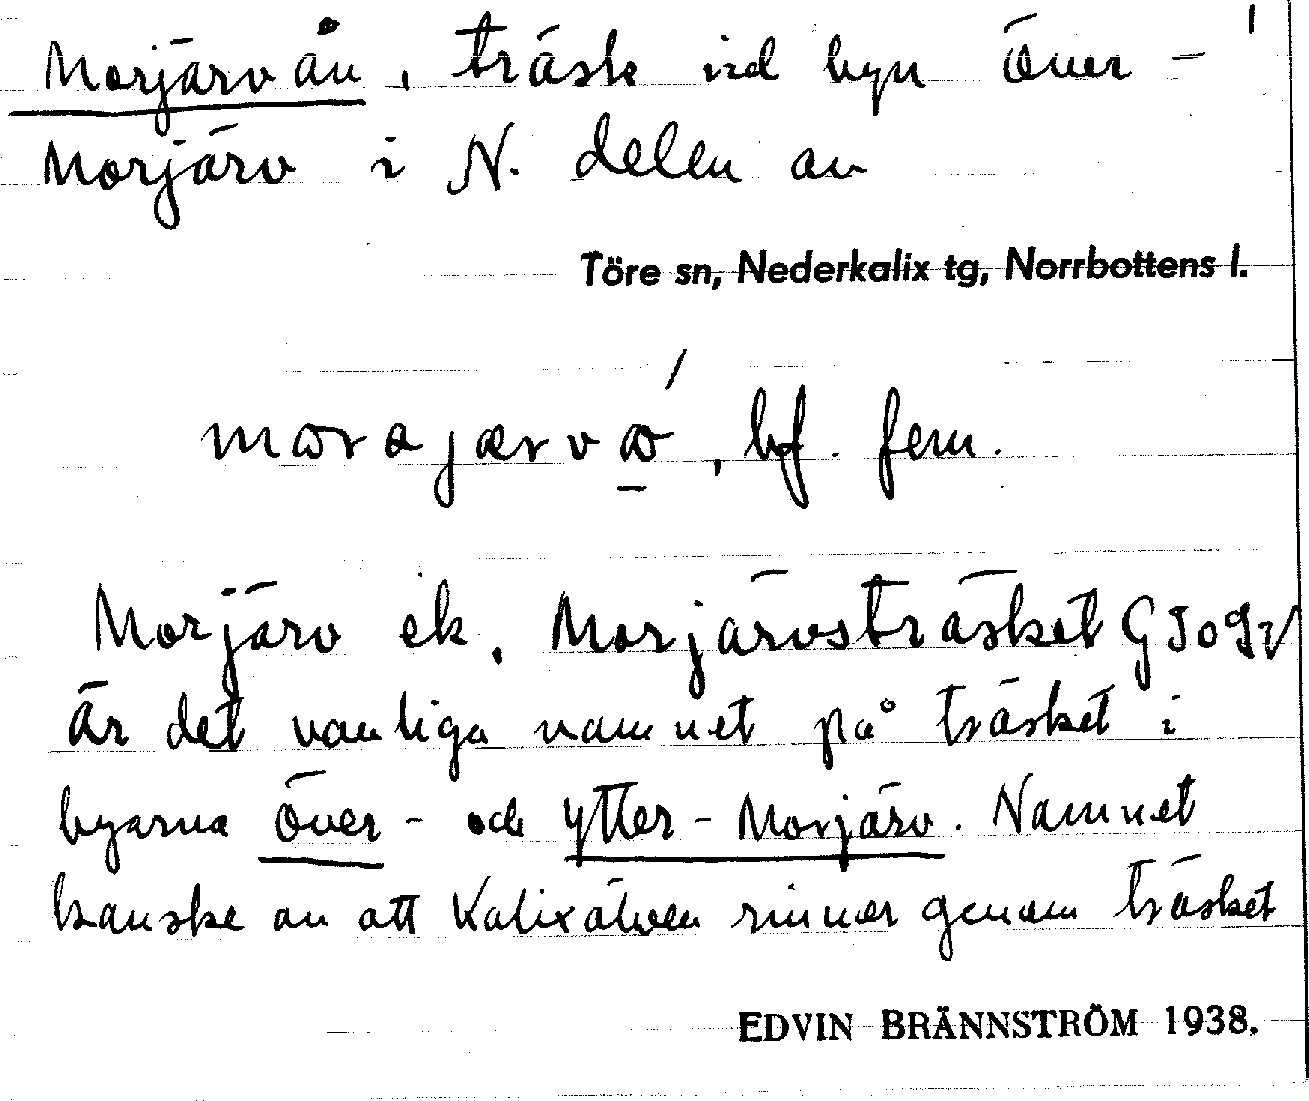 Morjärvån, träsk vid byn Över-
Morjärv i N. delen av
Töre sn, Nederkalix tg, Norrbottens l.
marajærvå, bf. fem.
Morjärv ek, Morjärvsträsket
är det vanliga namnet på träsket i
byarna Över- och Ytter-Morjärv. Namnet
kanske av att Kalixälven rinner genom träsket
EDVIN BRÄNNSTRÖM 1938.